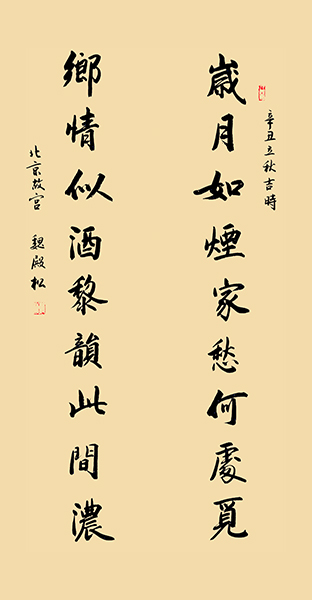 歲月如煙家愁何處覓
辛丑立秋吉時
鄉情似酒黎韻此間濃
北京故宮 魏殿松